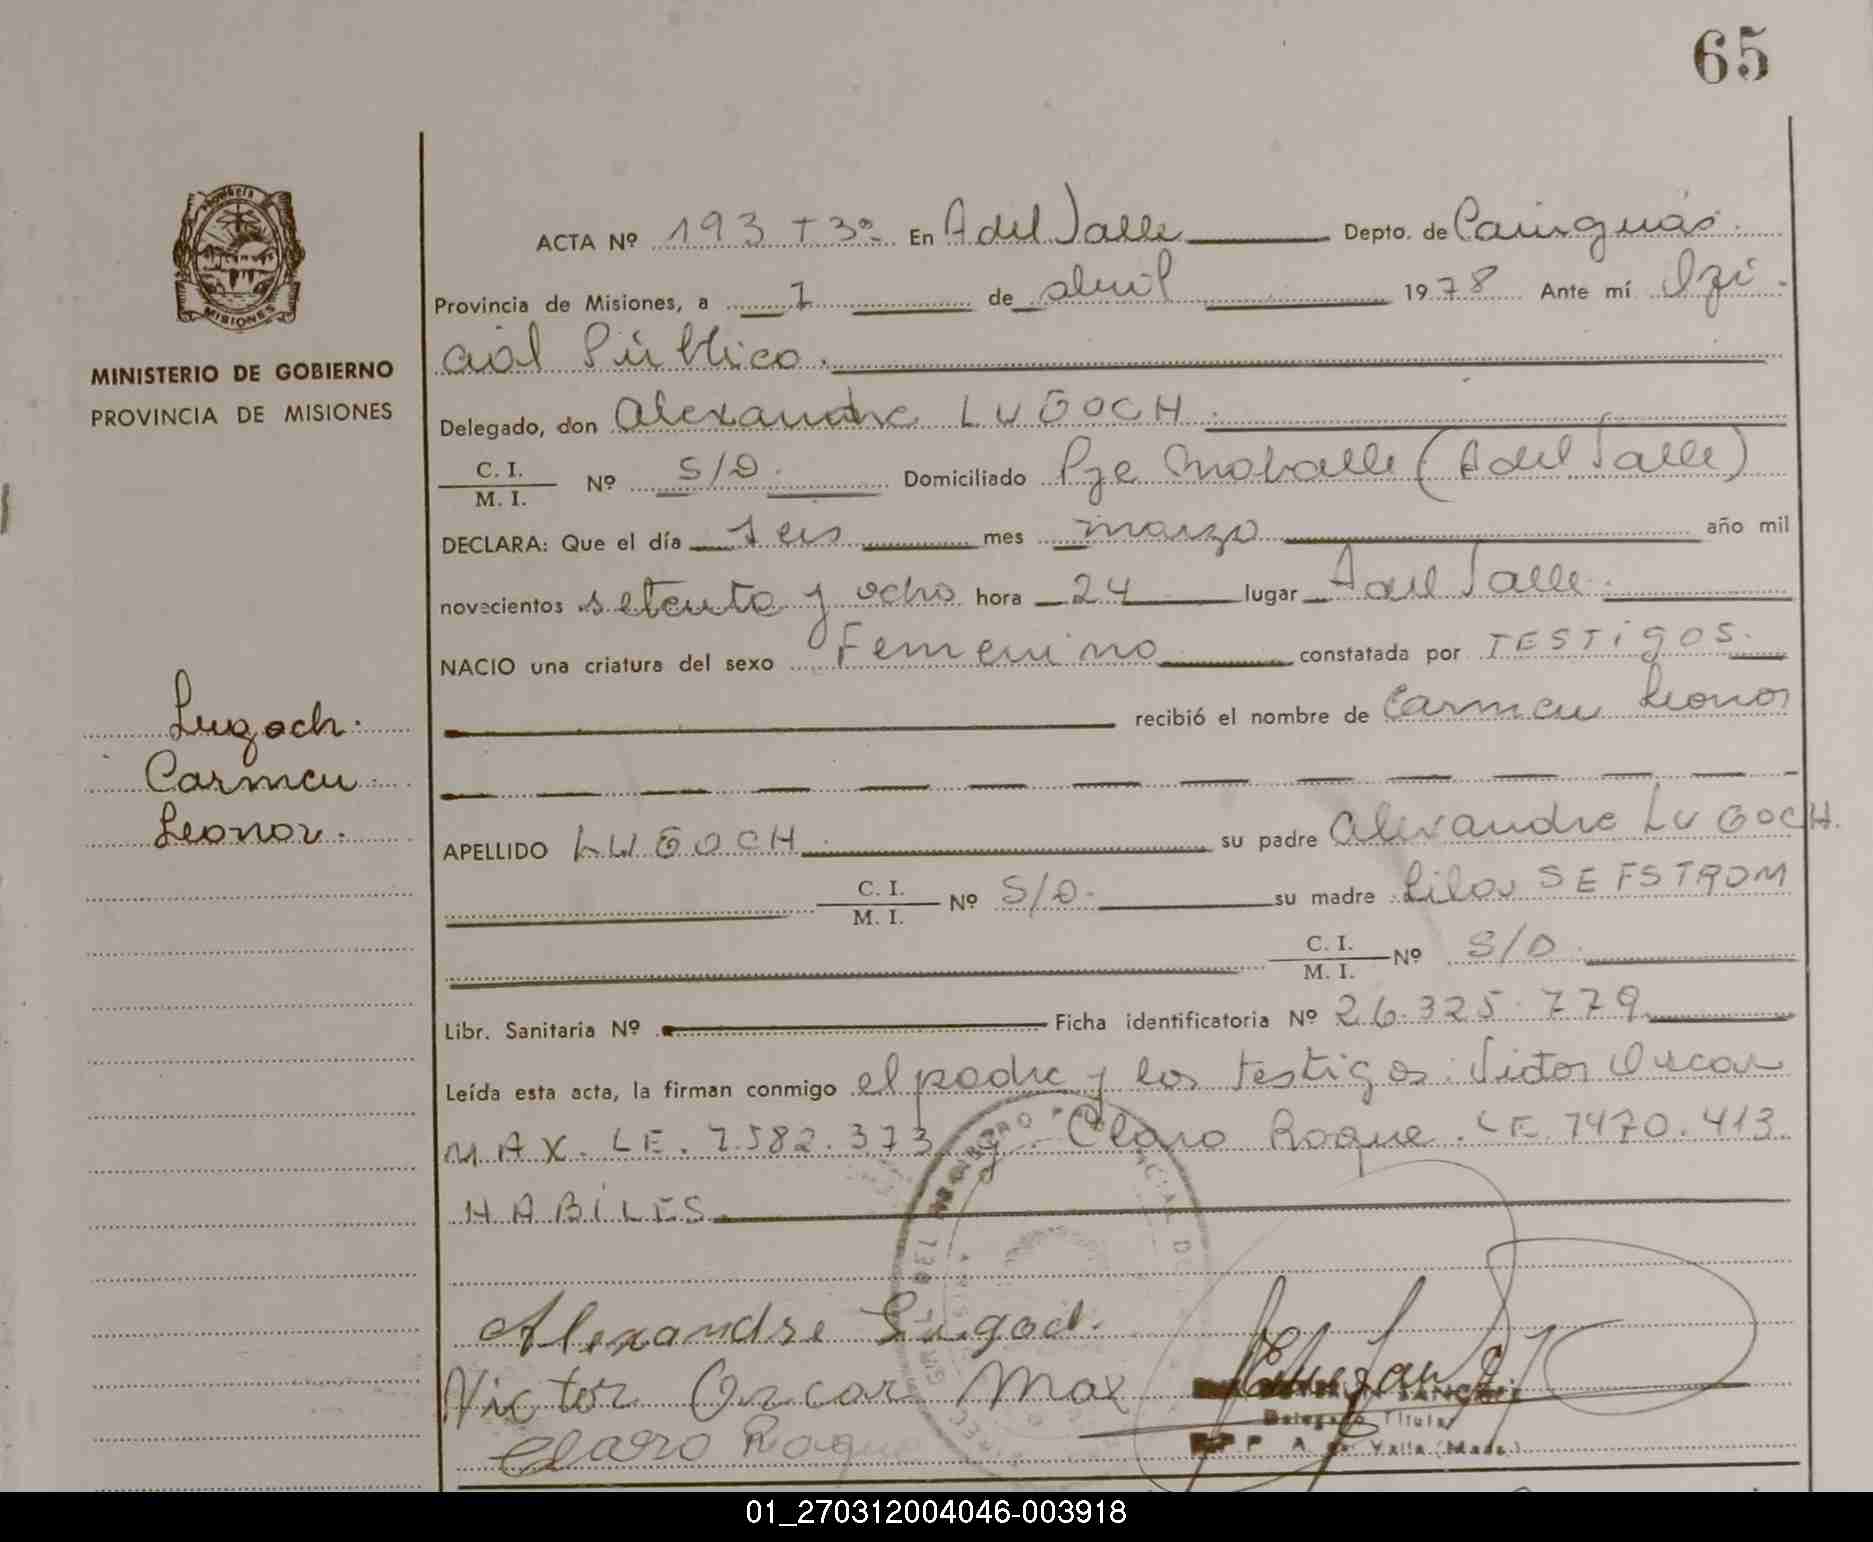 65
MINISTERIO DE GOBIERNO
PROVINCIA DE MISIONES
MISIONES
ACTA Nº 193 T 3º En A del Valle Depto. de Cainguás.
Provincia de Misiones, a 1 de abril 1978 Ante mí Ofi
cial Público.
Delegado, don Alexandre LUGOCH.
C. I. / M. I. Nº S/D. Domiciliado Pje Moballe (A del Valle)
DECLARA: Que el día seis mes marzo año mil
novecientos setenta y ocho hora 24 lugar A del Valle.
NACIO una criatura del sexo Femenino constatada por TESTIGOS.
recibió el nombre de Carmen Leonor
Lugoch.
Carmen
Leonor.
APELLIDO LUGOCH su padre Alexandre LUGOCH.
C. I. / M. I. Nº S/D. su madre Lilas SEFSTROM
C. I. / M. I. Nº S/D.
Libr. Sanitaria Nº Ficha identificatoria Nº 26.325.779
Leída esta acta, la firman conmigo el padre y los testigos: Victor Oscar
MAX. LE. 7.582.373 y Claro Roque. LE. 7470.413
HABILES.
Alexandre Lugoch.
Victor Oscar Max
Claro Roque
Delegado Titular
01_270312004046-003918